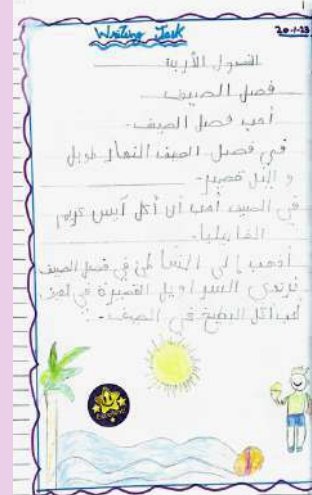 Writing Task
20-1-23
الفصول الأربعة
فصل الصيف
أحب فصل الصيف.
في فصل الصيف النهار طويل
و اليل قصير.
في الصيف أحب ان أكل آيس كريم
أذهب إلى الشاطئ في فصل الصيف
نرتدي السراويل القصيرة في
البطيخ في الصيف.